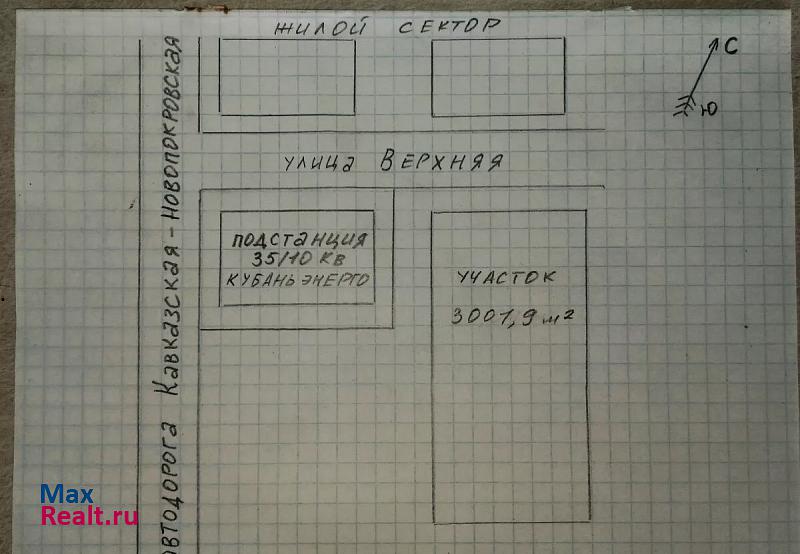 ЖИЛОЙ СЕКТОР
С
Ю
УЛИЦА ВЕРХНЯЯ
ПОДСТАНЦИЯ
35/10 КВ
КУБАНЬЭНЕРГО
УЧАСТОК
3001,9 м²
АВТОДОРОГА КАВКАЗСКАЯ-НОВОПОКРОВСКАЯ
Max
Realt.ru